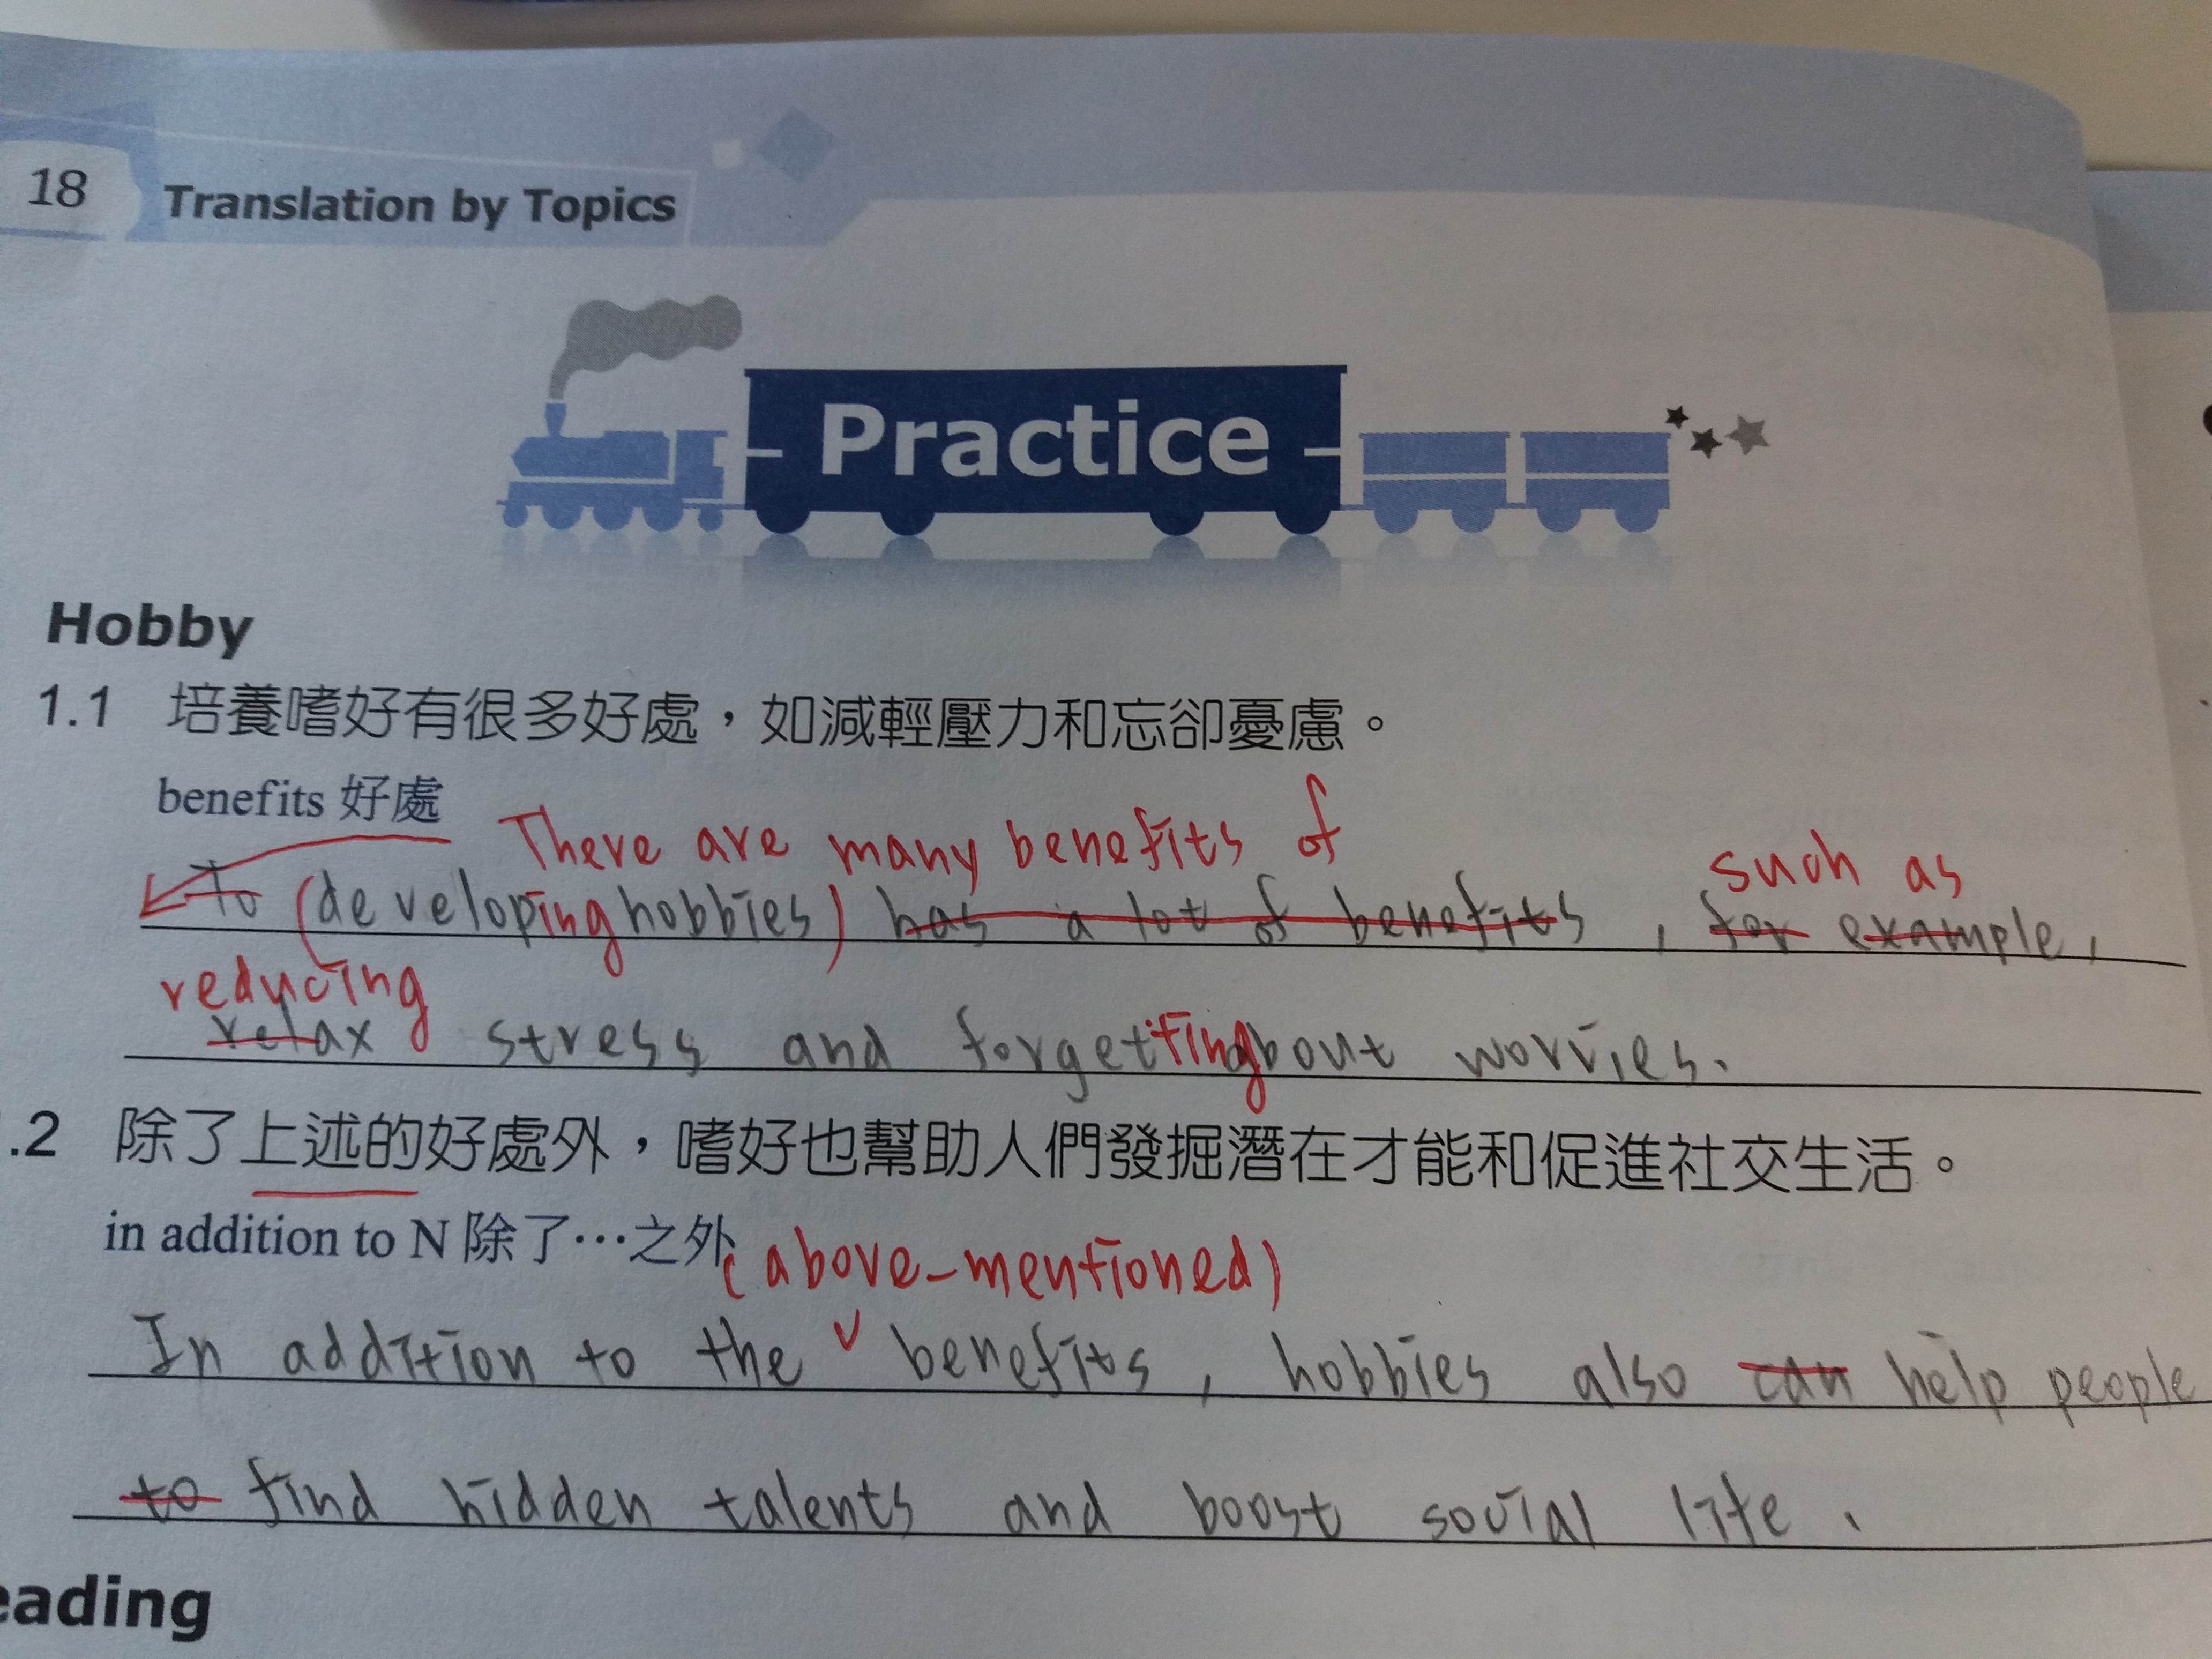 18 Translation by Topics
Practice
Hobby
1.1 培養嗜好有很多好處，如減輕壓力和忘卻憂慮。
benefits 好處
There are many benefits of
such as
to (developing hobbies) has a lot of benefits , for example,
reducing
relax stress and forgetting about worries.
.2 除了上述的好處外，嗜好也幫助人們發掘潛在才能和促進社交生活。
in addition to N 除了…之外
(above-mentioned)
In addition to the ✓ benefits, hobbies also can help people
to find hidden talents and boost social life.
eading